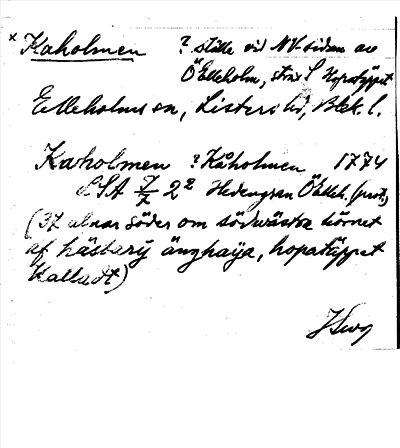 * Kaholmen ? ställe vid NV-sidan av
Ö Elleholm, strax S Hopatäppet
Elleholms sn, Listers hd, Blek. l.
Kaholmen ? Kåholmen 1774
LSA 7/7 2² Hedengran Ö Elleh. (prot.)
(37 alnar söder om södwästra hörnet
af hästary änghaija, hopatäppet
Kalladt)